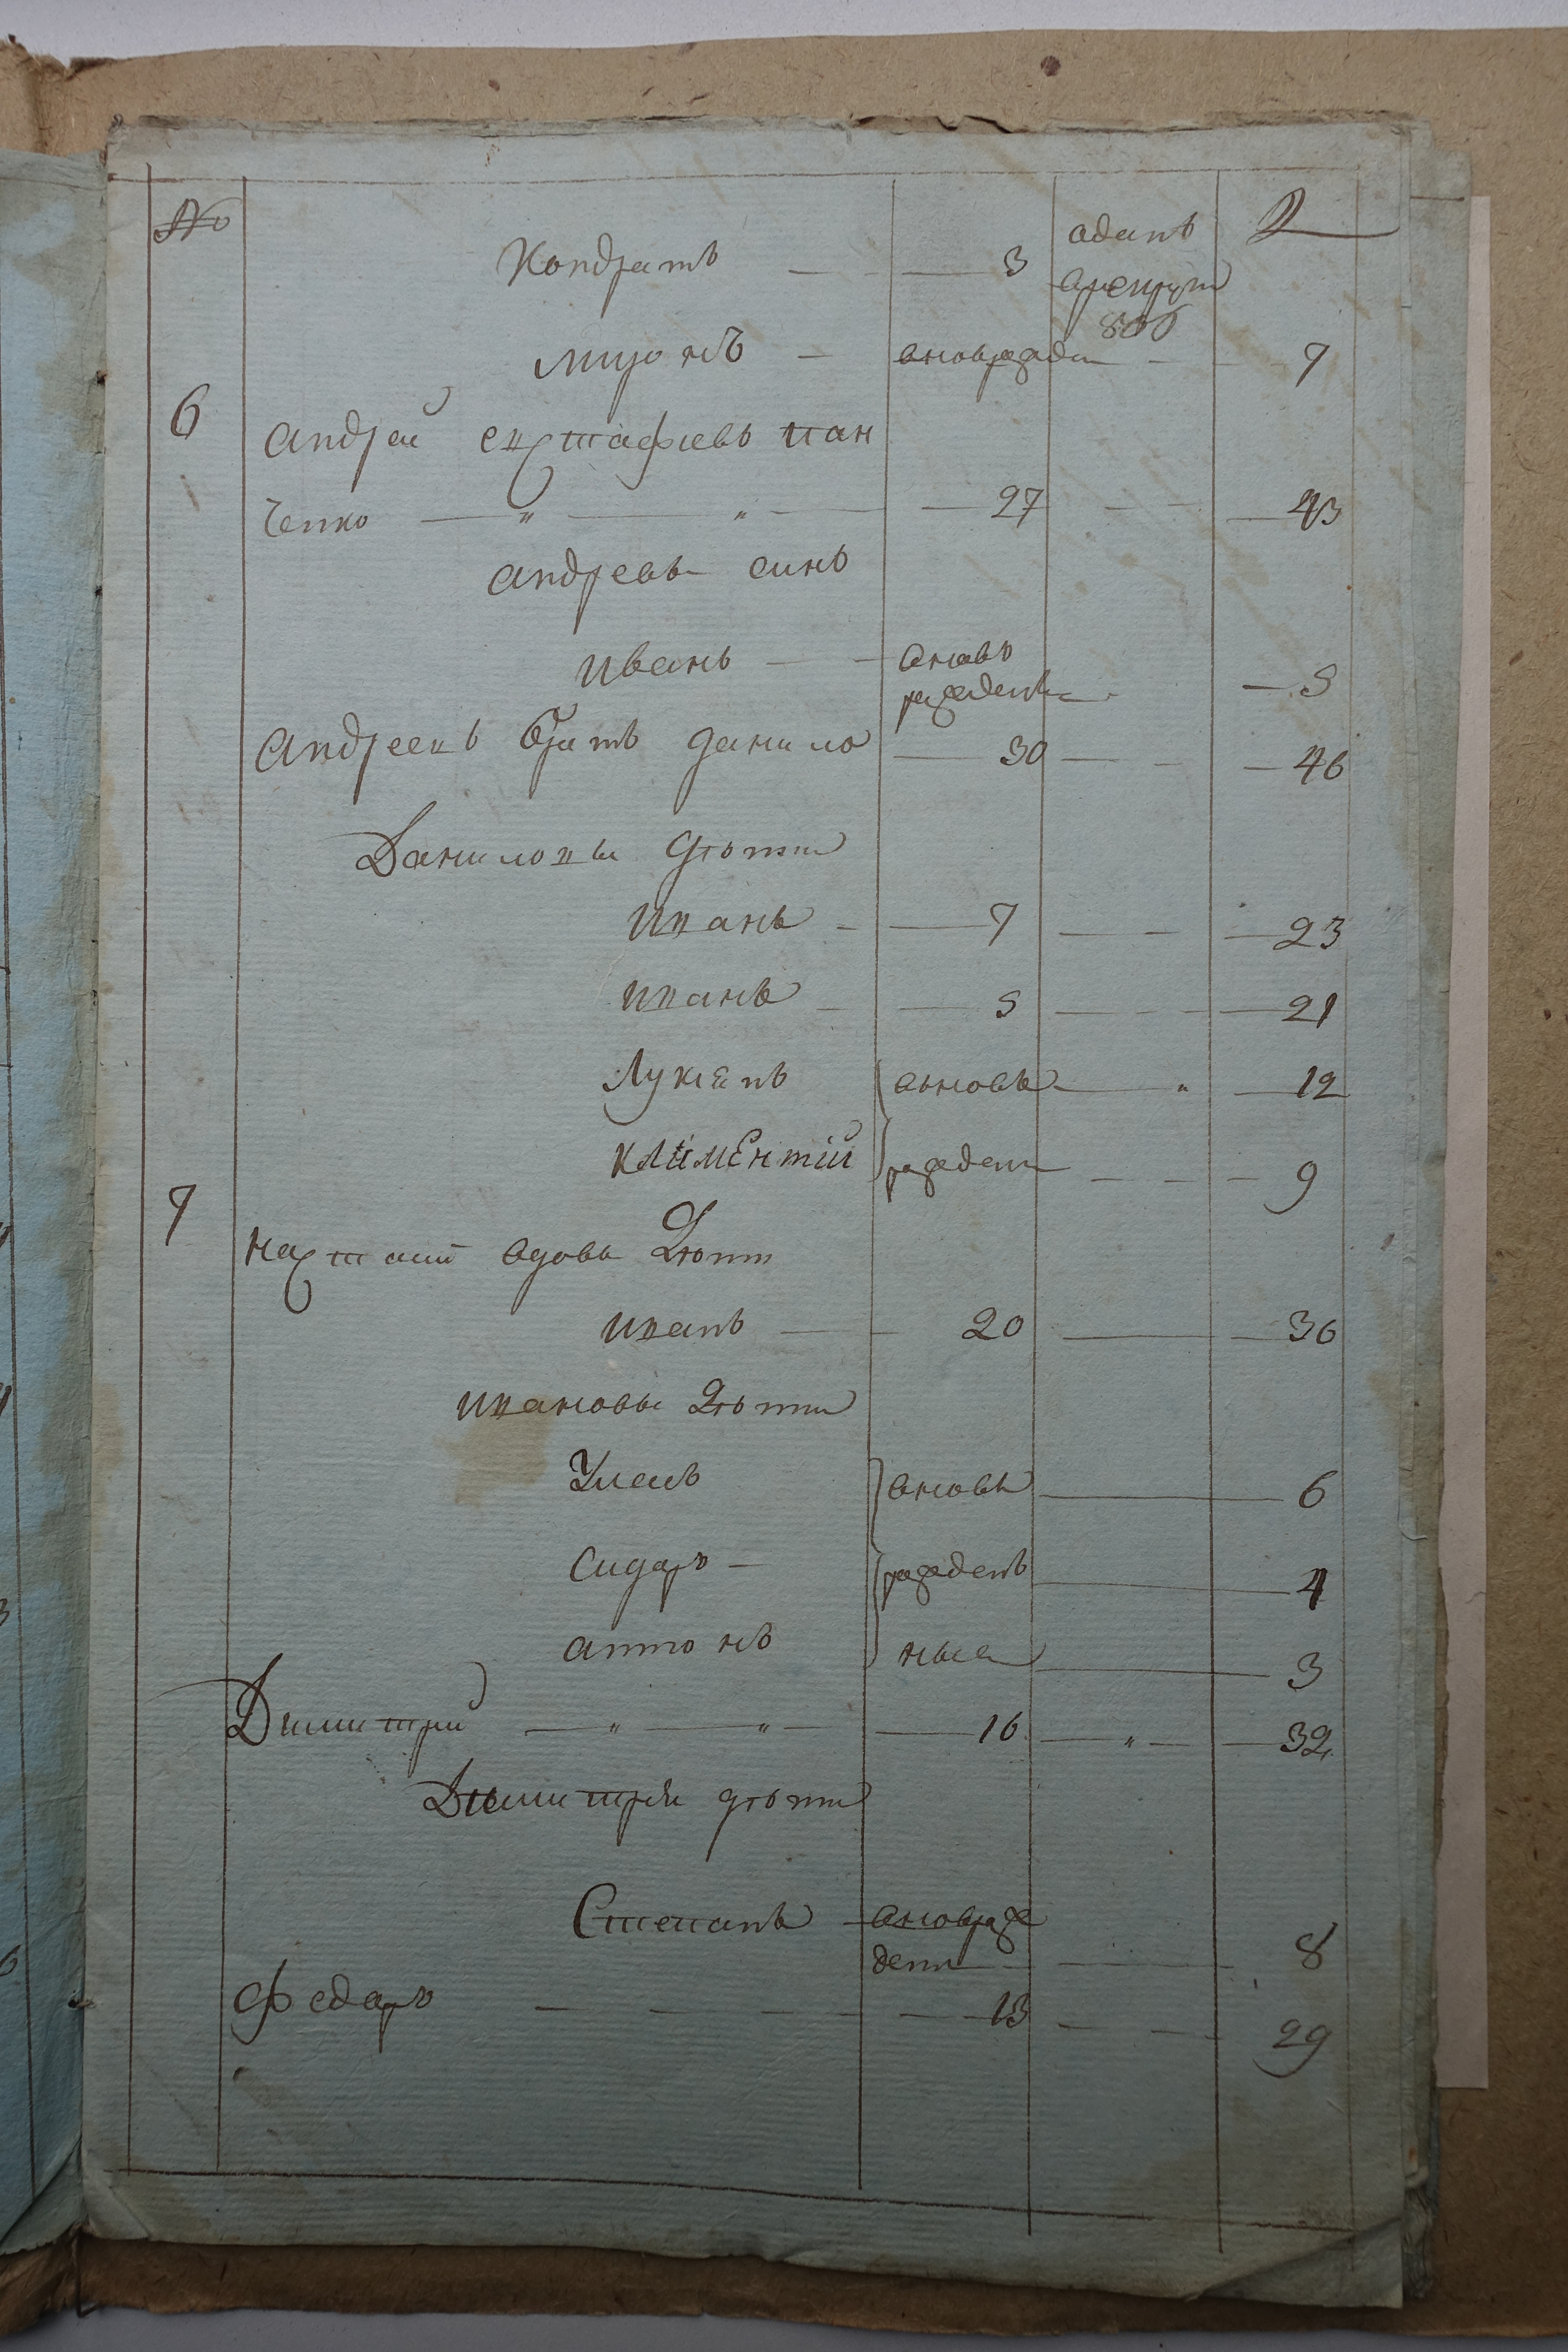 №
Кондратъ 3 оданъ
врекрут
806
миронъ вновражден 7
6
андрей евстафиевъ пан
ченко " " 27 43
андреевъ синъ
иванъ вновъ
ражденъ 5
андреевъ братъ данило 30 46
Даниловы дѣти
иванъ 7 23
иванъ 5 21
Лукянъ вьновь " 12
климентий ражден 9
7
настасий вдовы Дѣти
иванъ 20 36
ивановы Дѣти
Улась вновь 6
Сидаръ рожденъ 4
антонъ ные 3
Димитрий " " 16 " 32
Димитрия дѣти
Степанъ вновраж
ден 8
Федаръ 13 29